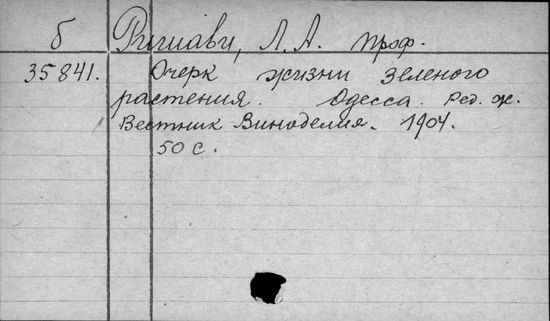 б Ришави, Л. А. проф.
35841. Очерк жизни зеленого
растения. Одесса. Ред. ж.
Вестник Виноделия. 1904.
50 с.